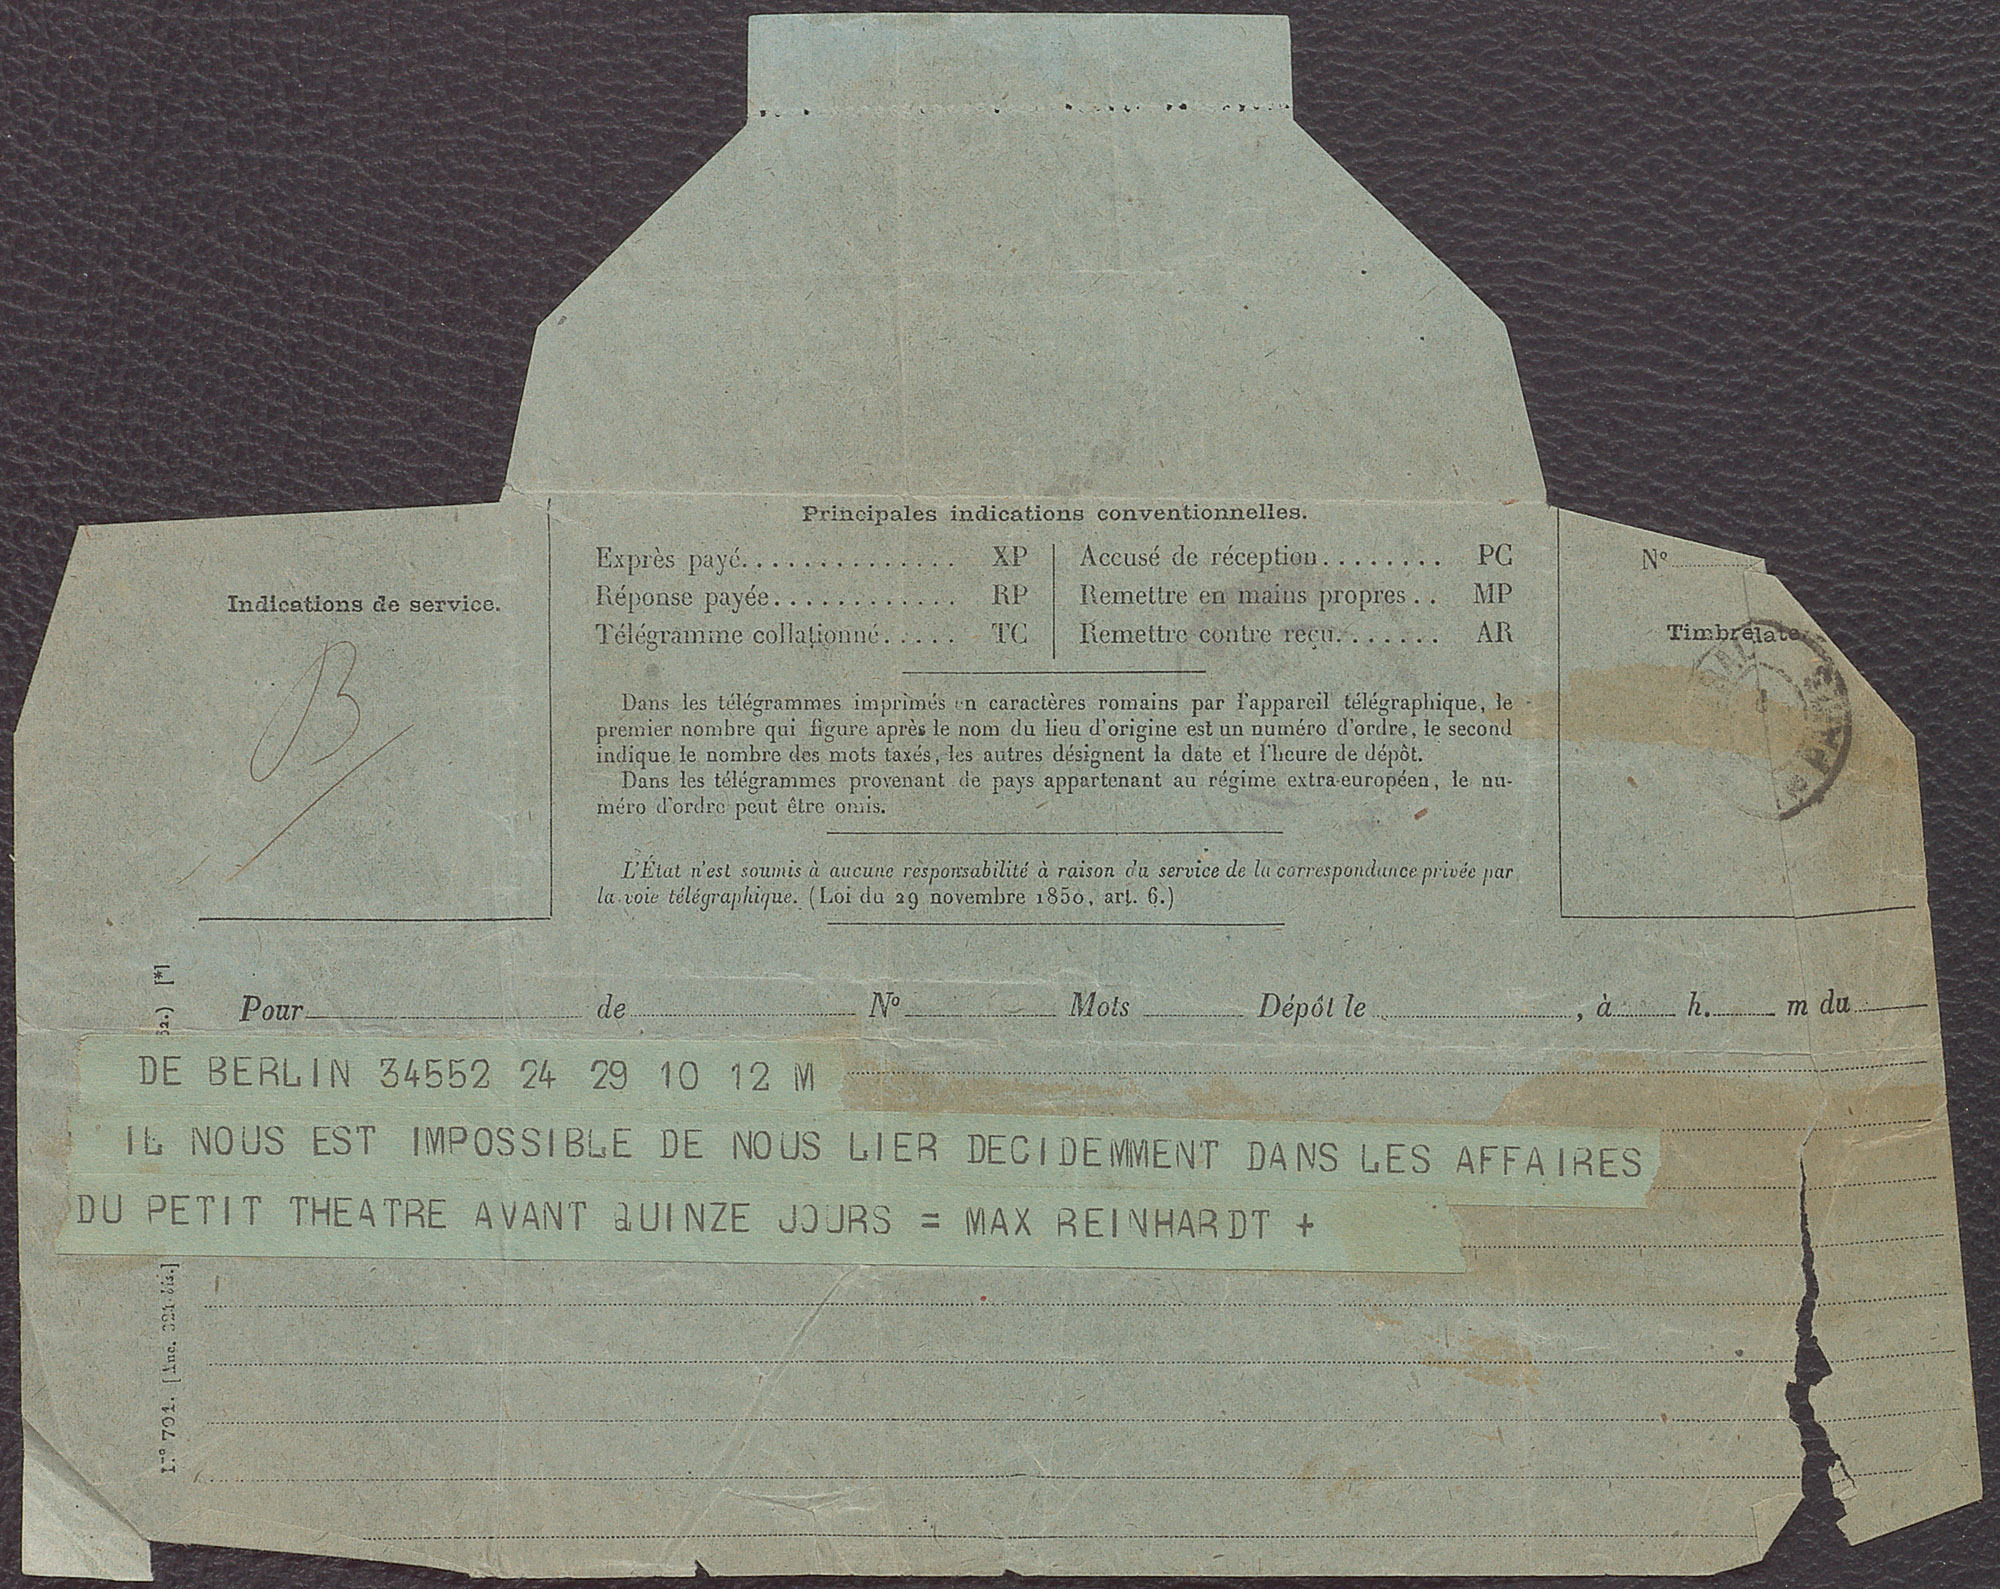 Principales indications conventionnelles.
Exprès payé.............. XP
Réponse payée............ RP
Télégramme collationné..... TC
Accusé de réception........ PC
Remettre en mains propres.. MP
Remettre contre reçu....... AR
Indications de service.
B
N°
Timbre à date
PARIS
Dans les télégrammes imprimés en caractères romains par l'appareil télégraphique, le
premier nombre qui figure après le nom du lieu d'origine est un numéro d'ordre, le second
indique le nombre des mots taxés, les autres désignent la date et l'heure de dépôt.
Dans les télégrammes provenant de pays appartenant au régime extra-européen, le nu-
méro d'ordre peut être omis.
L'État n'est soumis à aucune responsabilité à raison du service de la correspondance privée par
la voie télégraphique. (Loi du 29 novembre 1850, art. 6.)
Pour de N° Mots Dépôt le , à h. m du
DE BERLIN 34552 24 29 10 12 M
IL NOUS EST IMPOSSIBLE DE NOUS LIER DECIDEMMENT DANS LES AFFAIRES
DU PETIT THEATRE AVANT QUINZE JOURS = MAX REINHARDT +
N° 701. [Anc. 324 bis.]